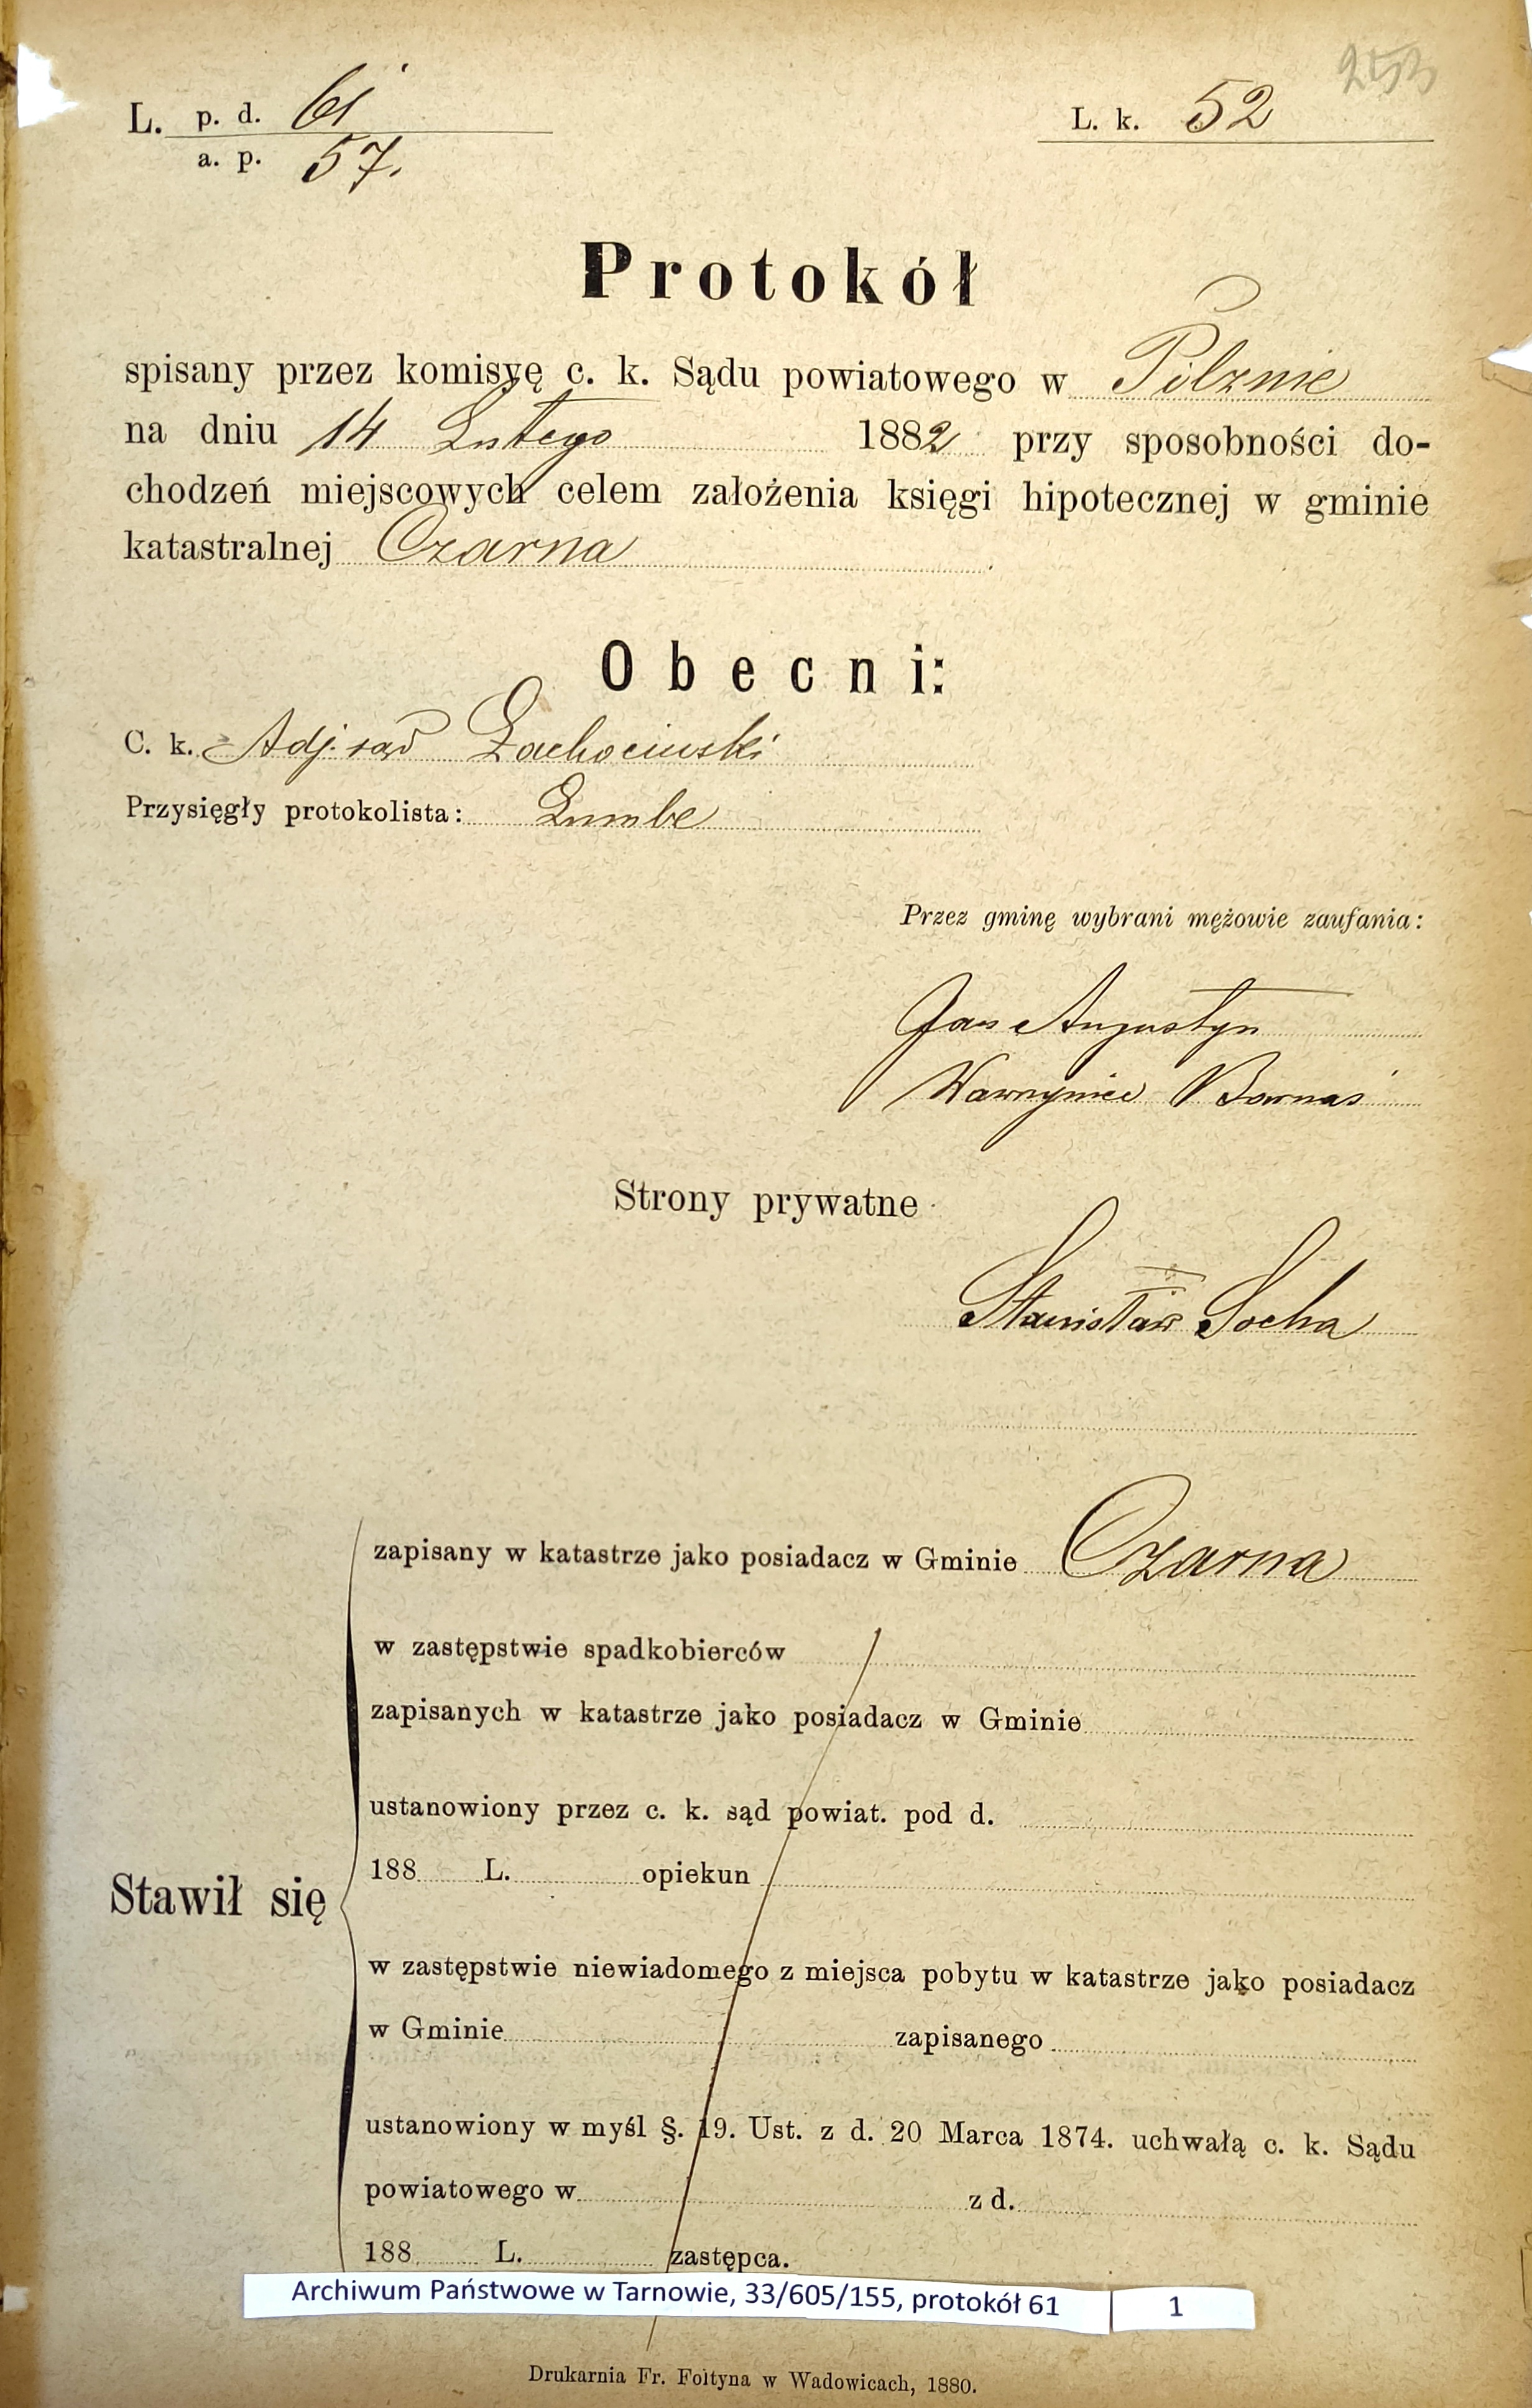 253
L. p. d. 61
a. p. 57.
L. k. 52
Protokół
spisany przez komisyę c. k. Sądu powiatowego w Pilznie
na dniu 14 Lutego 1882 przy sposobności do-
chodzeń miejscowych celem założenia księgi hipotecznej w gminie
katastralnej Czarna
Obecni:
C. k. Adj. sąd Zachociński
Przysięgły protokolista:
Przez gminę wybrani mężowie zaufania:
Jan Augustyn
Wawrzyniec Barnaś
Strony prywatne
Stanisław Socha
zapisany w katastrze jako posiadacz w Gminie Czarna
w zastępstwie spadkobierców
zapisanych w katastrze jako posiadacz w Gminie
ustanowiony przez c. k. sąd powiat. pod d.
188 L. opiekun
Stawił się
w zastępstwie niewiadomego z miejsca pobytu w katastrze jako posiadacz
w Gminie zapisanego
ustanowiony w myśl §. 19. Ust. z d. 20 Marca 1874. uchwałą c. k. Sądu
powiatowego w z d.
188 L. zastępca.
Archiwum Państwowe w Tarnowie, 33/605/155, protokół 61 1
Drukarnia Fr. Foltyna w Wadowicach, 1880.